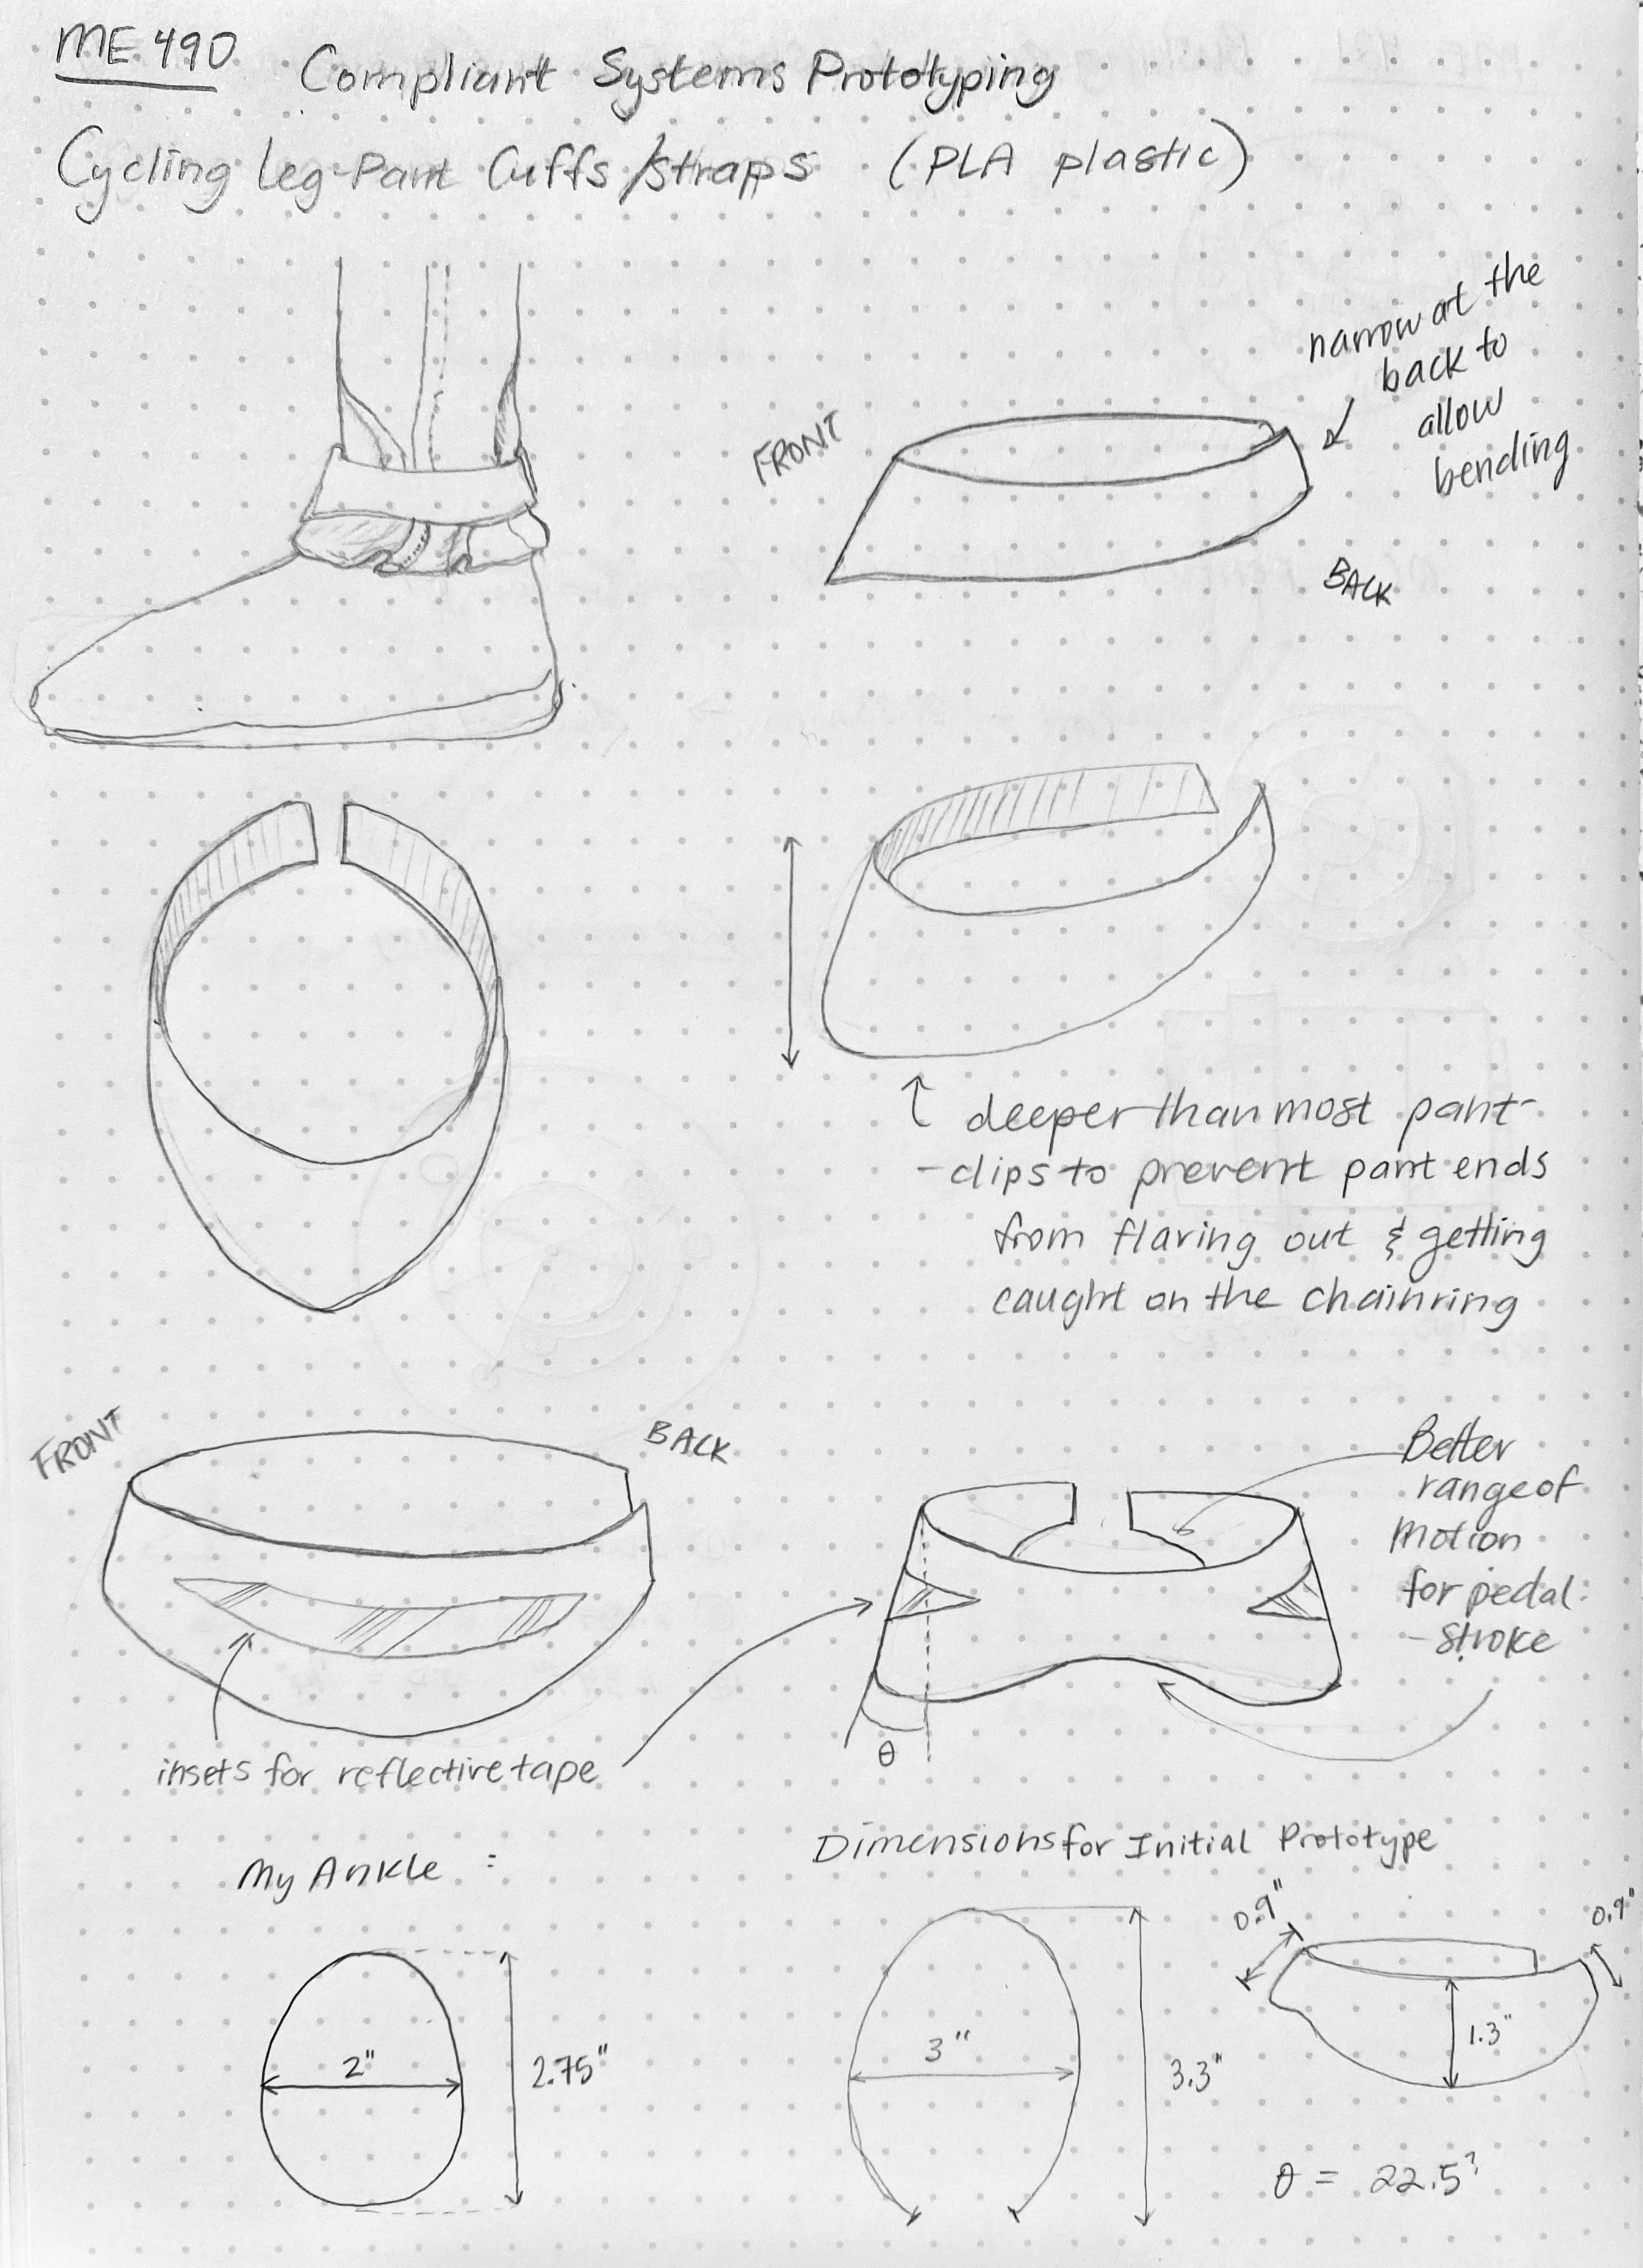 ME 490 Compliant Systems Prototyping
Cycling Leg-Pant Cuffs/straps (PLA plastic)
narrow at the
back to
allow
bending
FRONT
BACK
deeper than most pant-
-clips to prevent pant ends
from flaring out & getting
caught on the chainring
FRONT
BACK
Better
range of
motion
for pedal
-stroke
insets for reflective tape
θ
My Ankle :
2"
2.75"
Dimensions for Initial Prototype
3"
3.3"
0.9"
0.9"
1.3"
θ = 22.5?